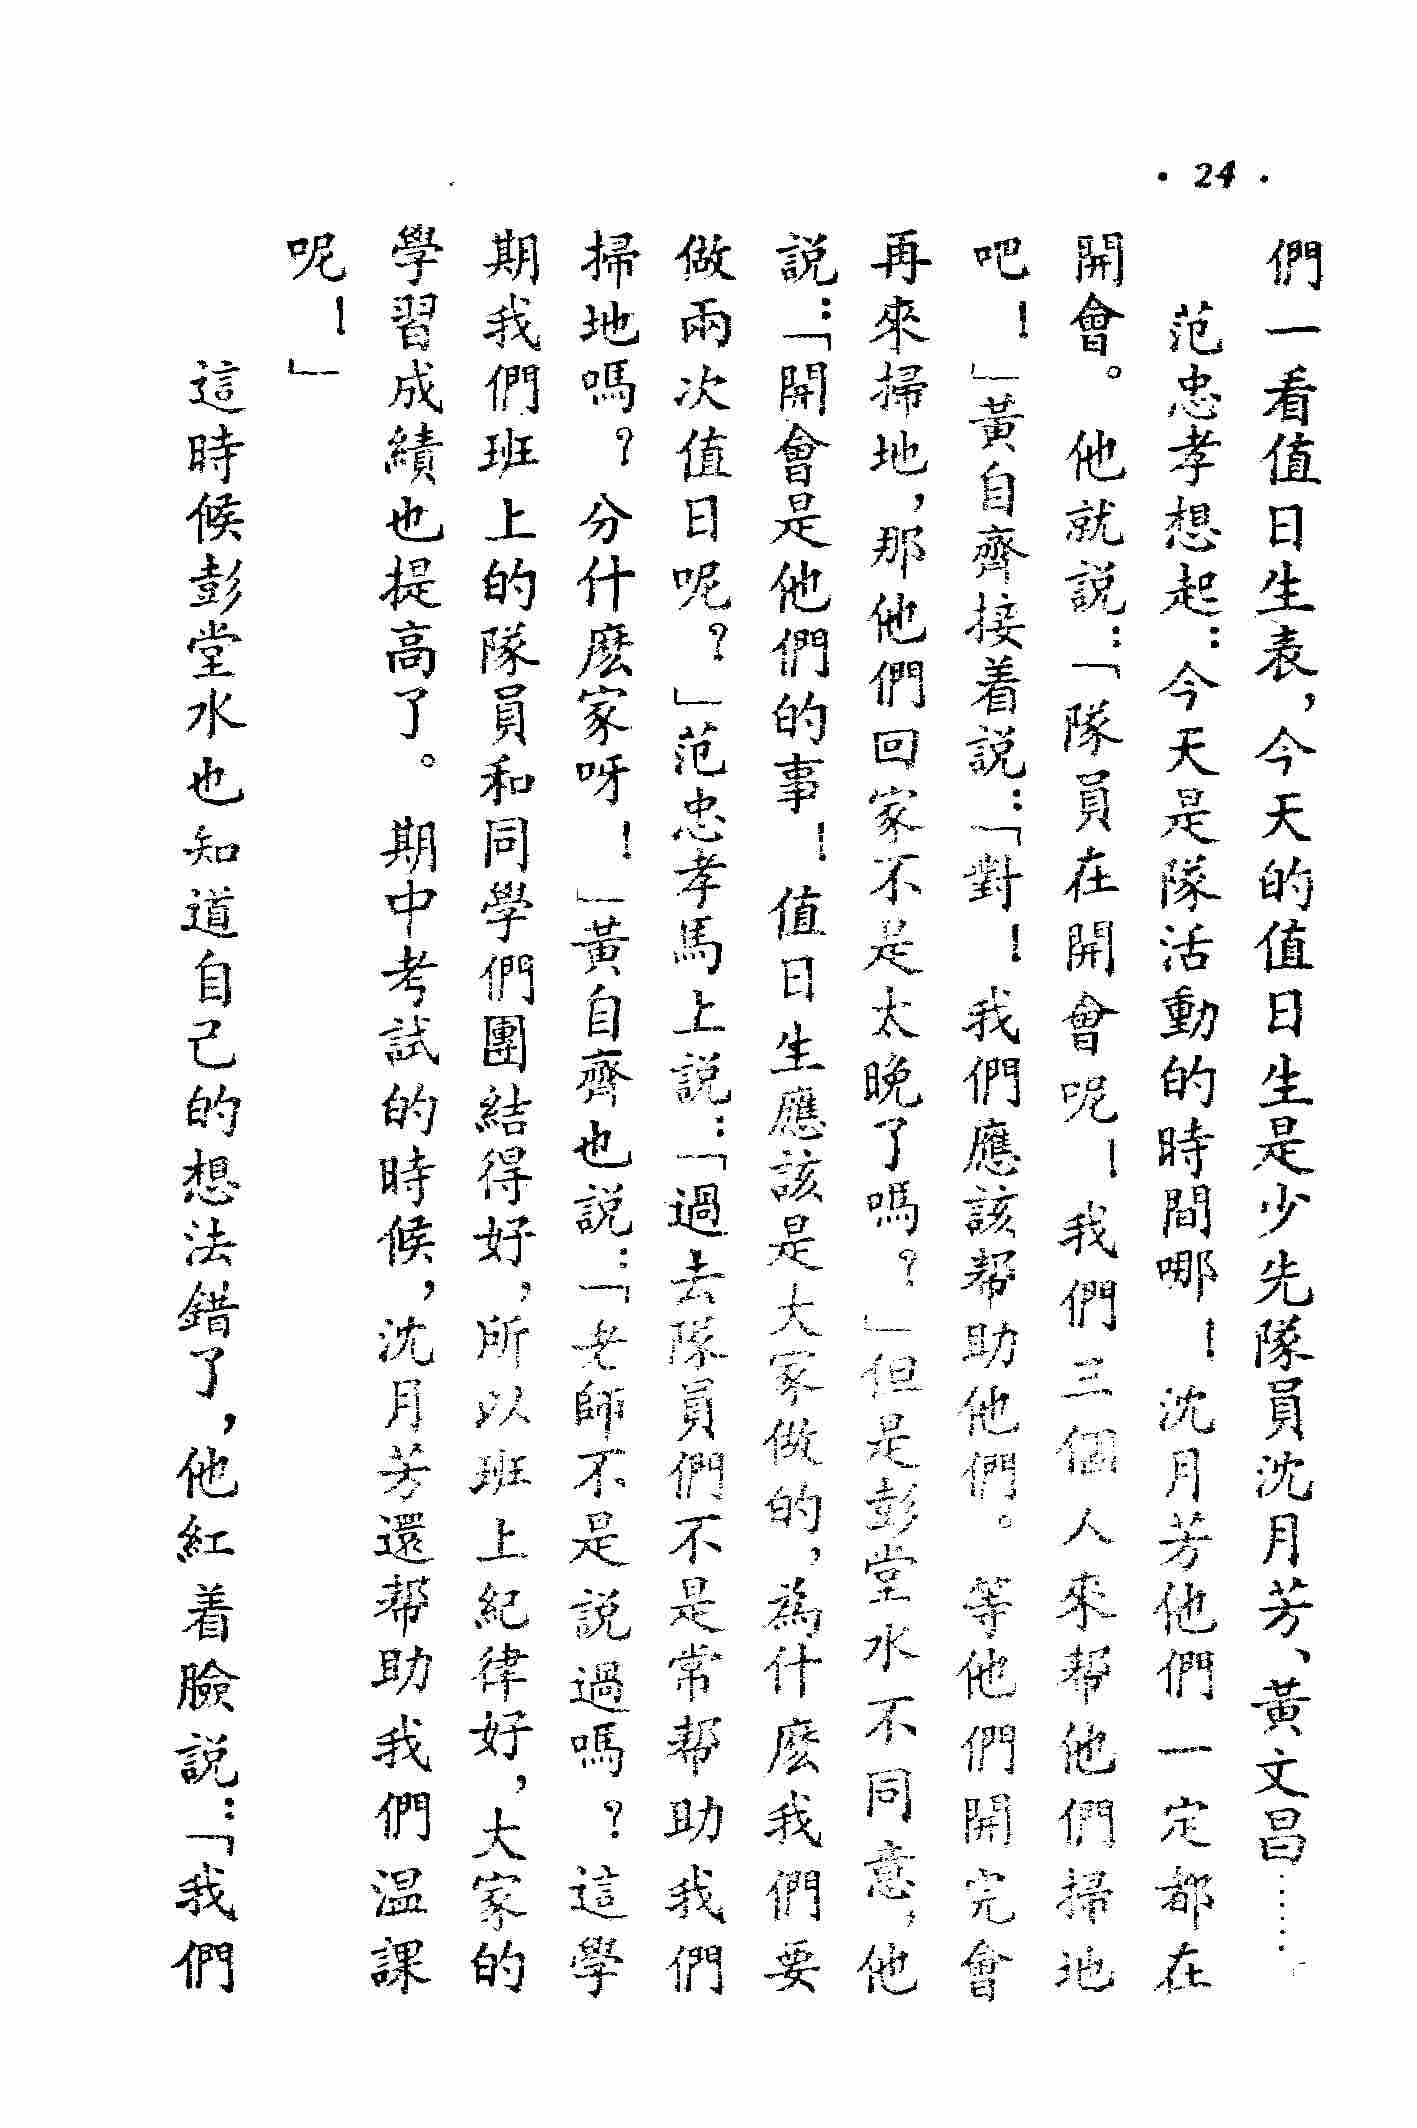 · 24 ·
們一看值日生表，今天的值日生是少先隊員沈月芳、黃文昌……
范忠孝想起：今天是隊活動的時間哪！沈月芳他們一定都在
開會。他就説：「隊員在開會呢！我們三個人來帮他們掃地
吧！」黃自齊接着説：「對！我們應該帮助他們。等他們開完會
再來掃地，那他們回家不是太晚了嗎？」但是彭堂水不同意，他
説：「開會是他們的事！值日生應該是大家做的，為什麽我們要
做兩次值日呢？」范忠孝馬上説：「過去隊員們不是常帮助我們
掃地嗎？分什麽家呀！」黃自齊也説：「老師不是説過嗎？這學
期我們班上的隊員和同學們團結得好，所以班上紀律好，大家的
學習成績也提高了。期中考試的時候，沈月芳還帮助我們温課
呢！」
這時候彭堂水也知道自己的想法錯了，他紅着臉説：「我們